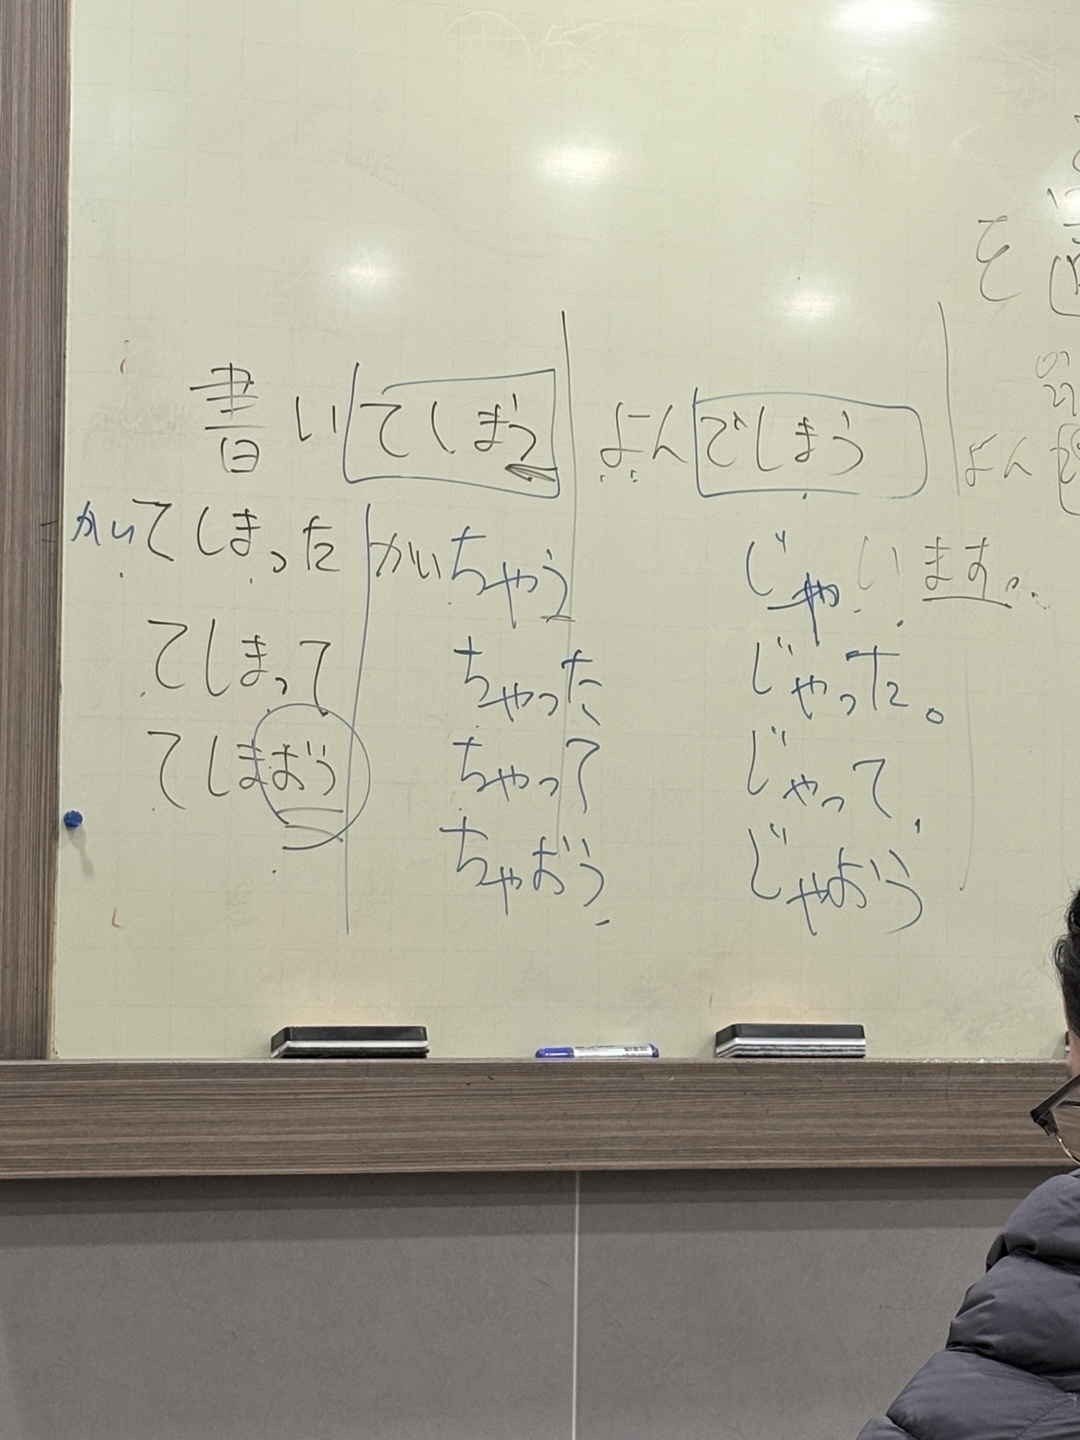 を
書いてしまう
よんでしまう
よん
かいてしまった
かいちゃう
じゃいます。
てしまって
ちゃった
じゃった。
てしまおう
ちゃって
じゃって
ちゃおう
じゃおう